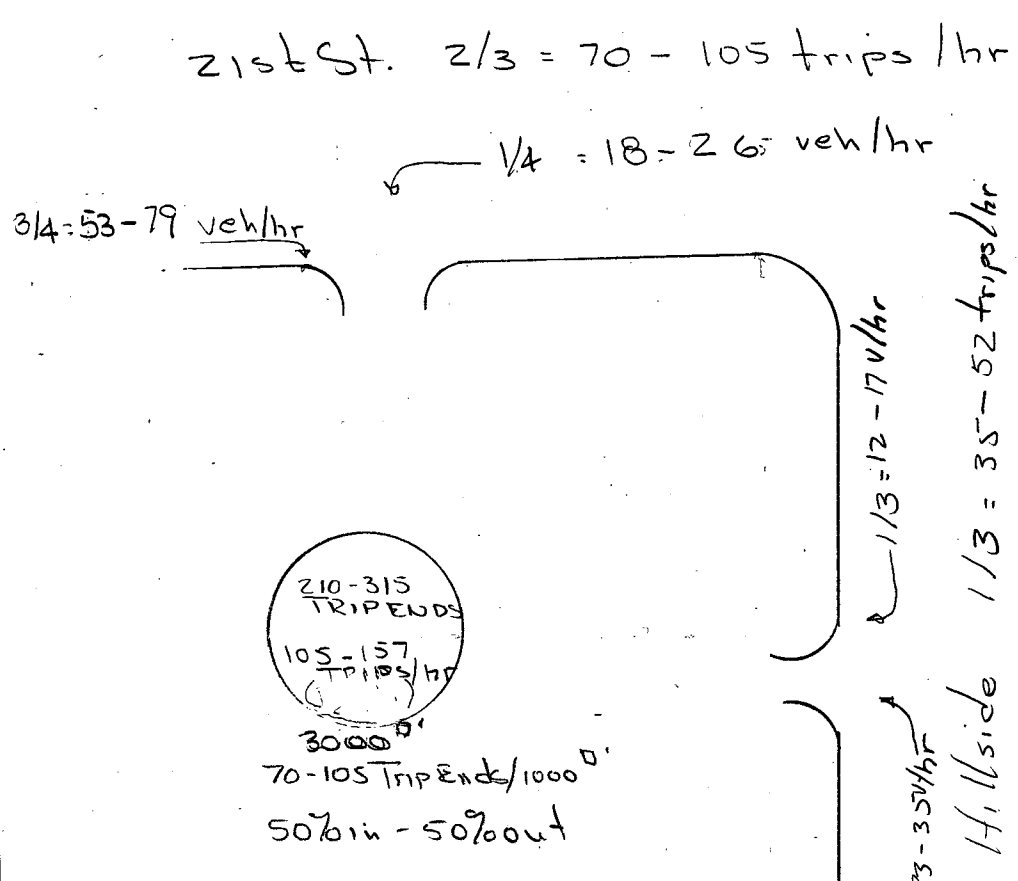 21st St. 2/3 = 70 - 105 trips/hr
1/4 = 18 - 26 veh/hr
3/4 = 53 - 79 veh/hr
1/3 = 12 - 17 v/hr
Hillside 1/3 = 35 - 52 trips/hr
210 - 315
TRIP ENDS
105 - 157
TRIPS/hr
3000 □'
70 - 105 Trip Ends/1000 □'
50% in - 50% out
3 - 35 v/hr